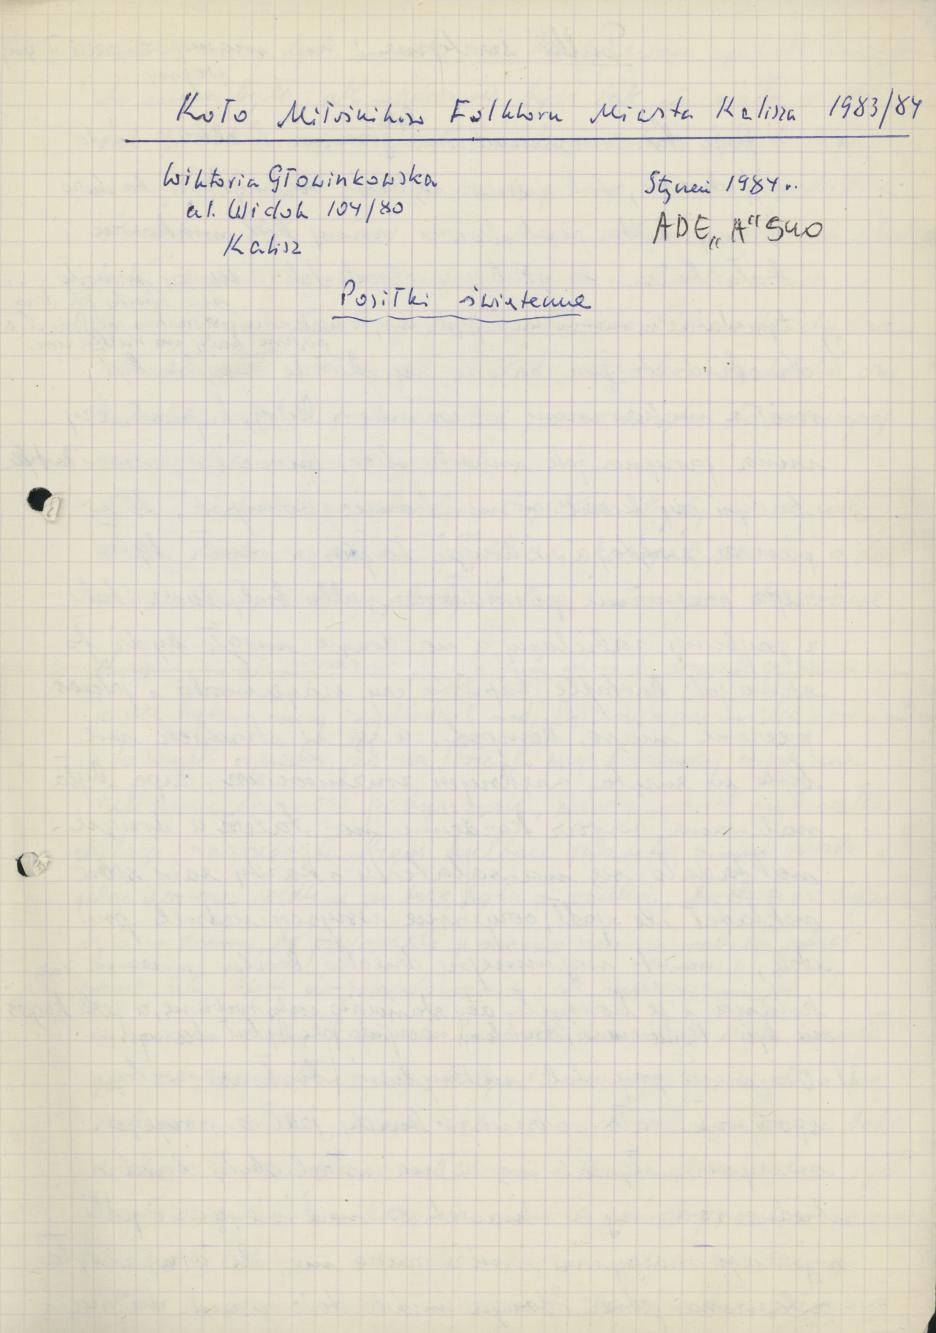 Koło Miłośników Folkloru Miasta Kalisza 1983/84
Wiktoria Głowinkowska
al. Widok 104/80
Kalisz
Styczeń 1984 r.
ADE „A" 540
Posiłki świąteczne